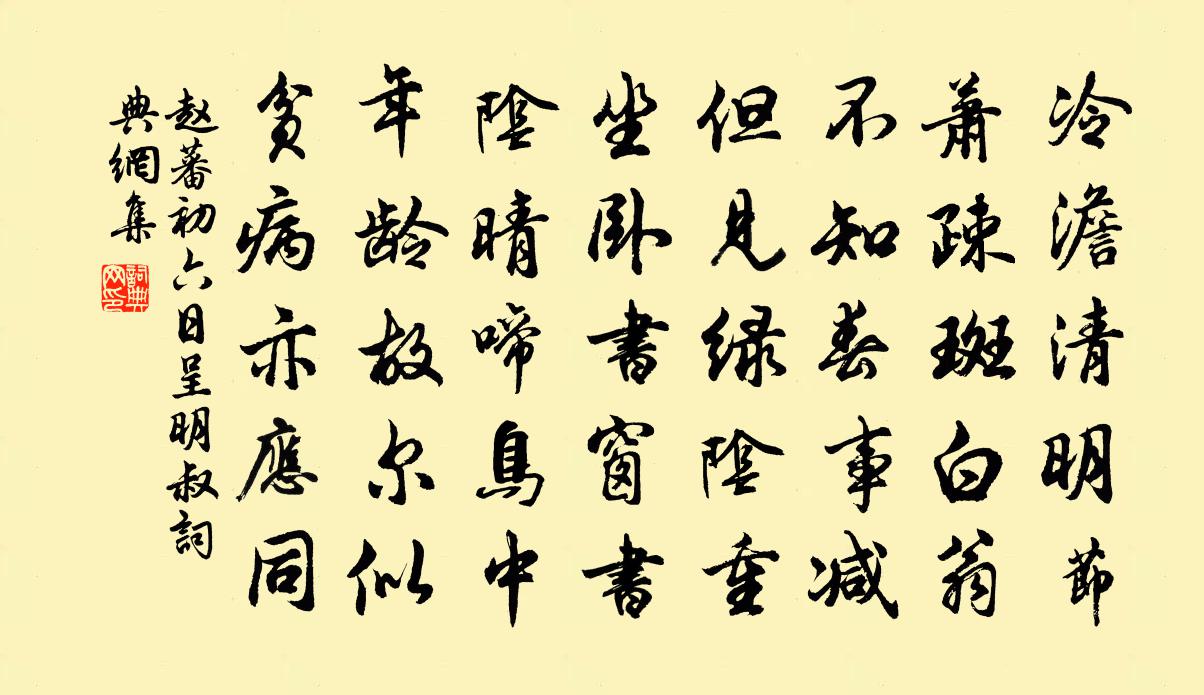 冷澹清明節
蕭疎斑白翁
不知春事减
但見绿陰重
坐卧書窗書
陰晴啼鳥中
年龄故尔似
貧病亦應同
赵蕃初六日呈明叔詞
典網集
詞典
网印